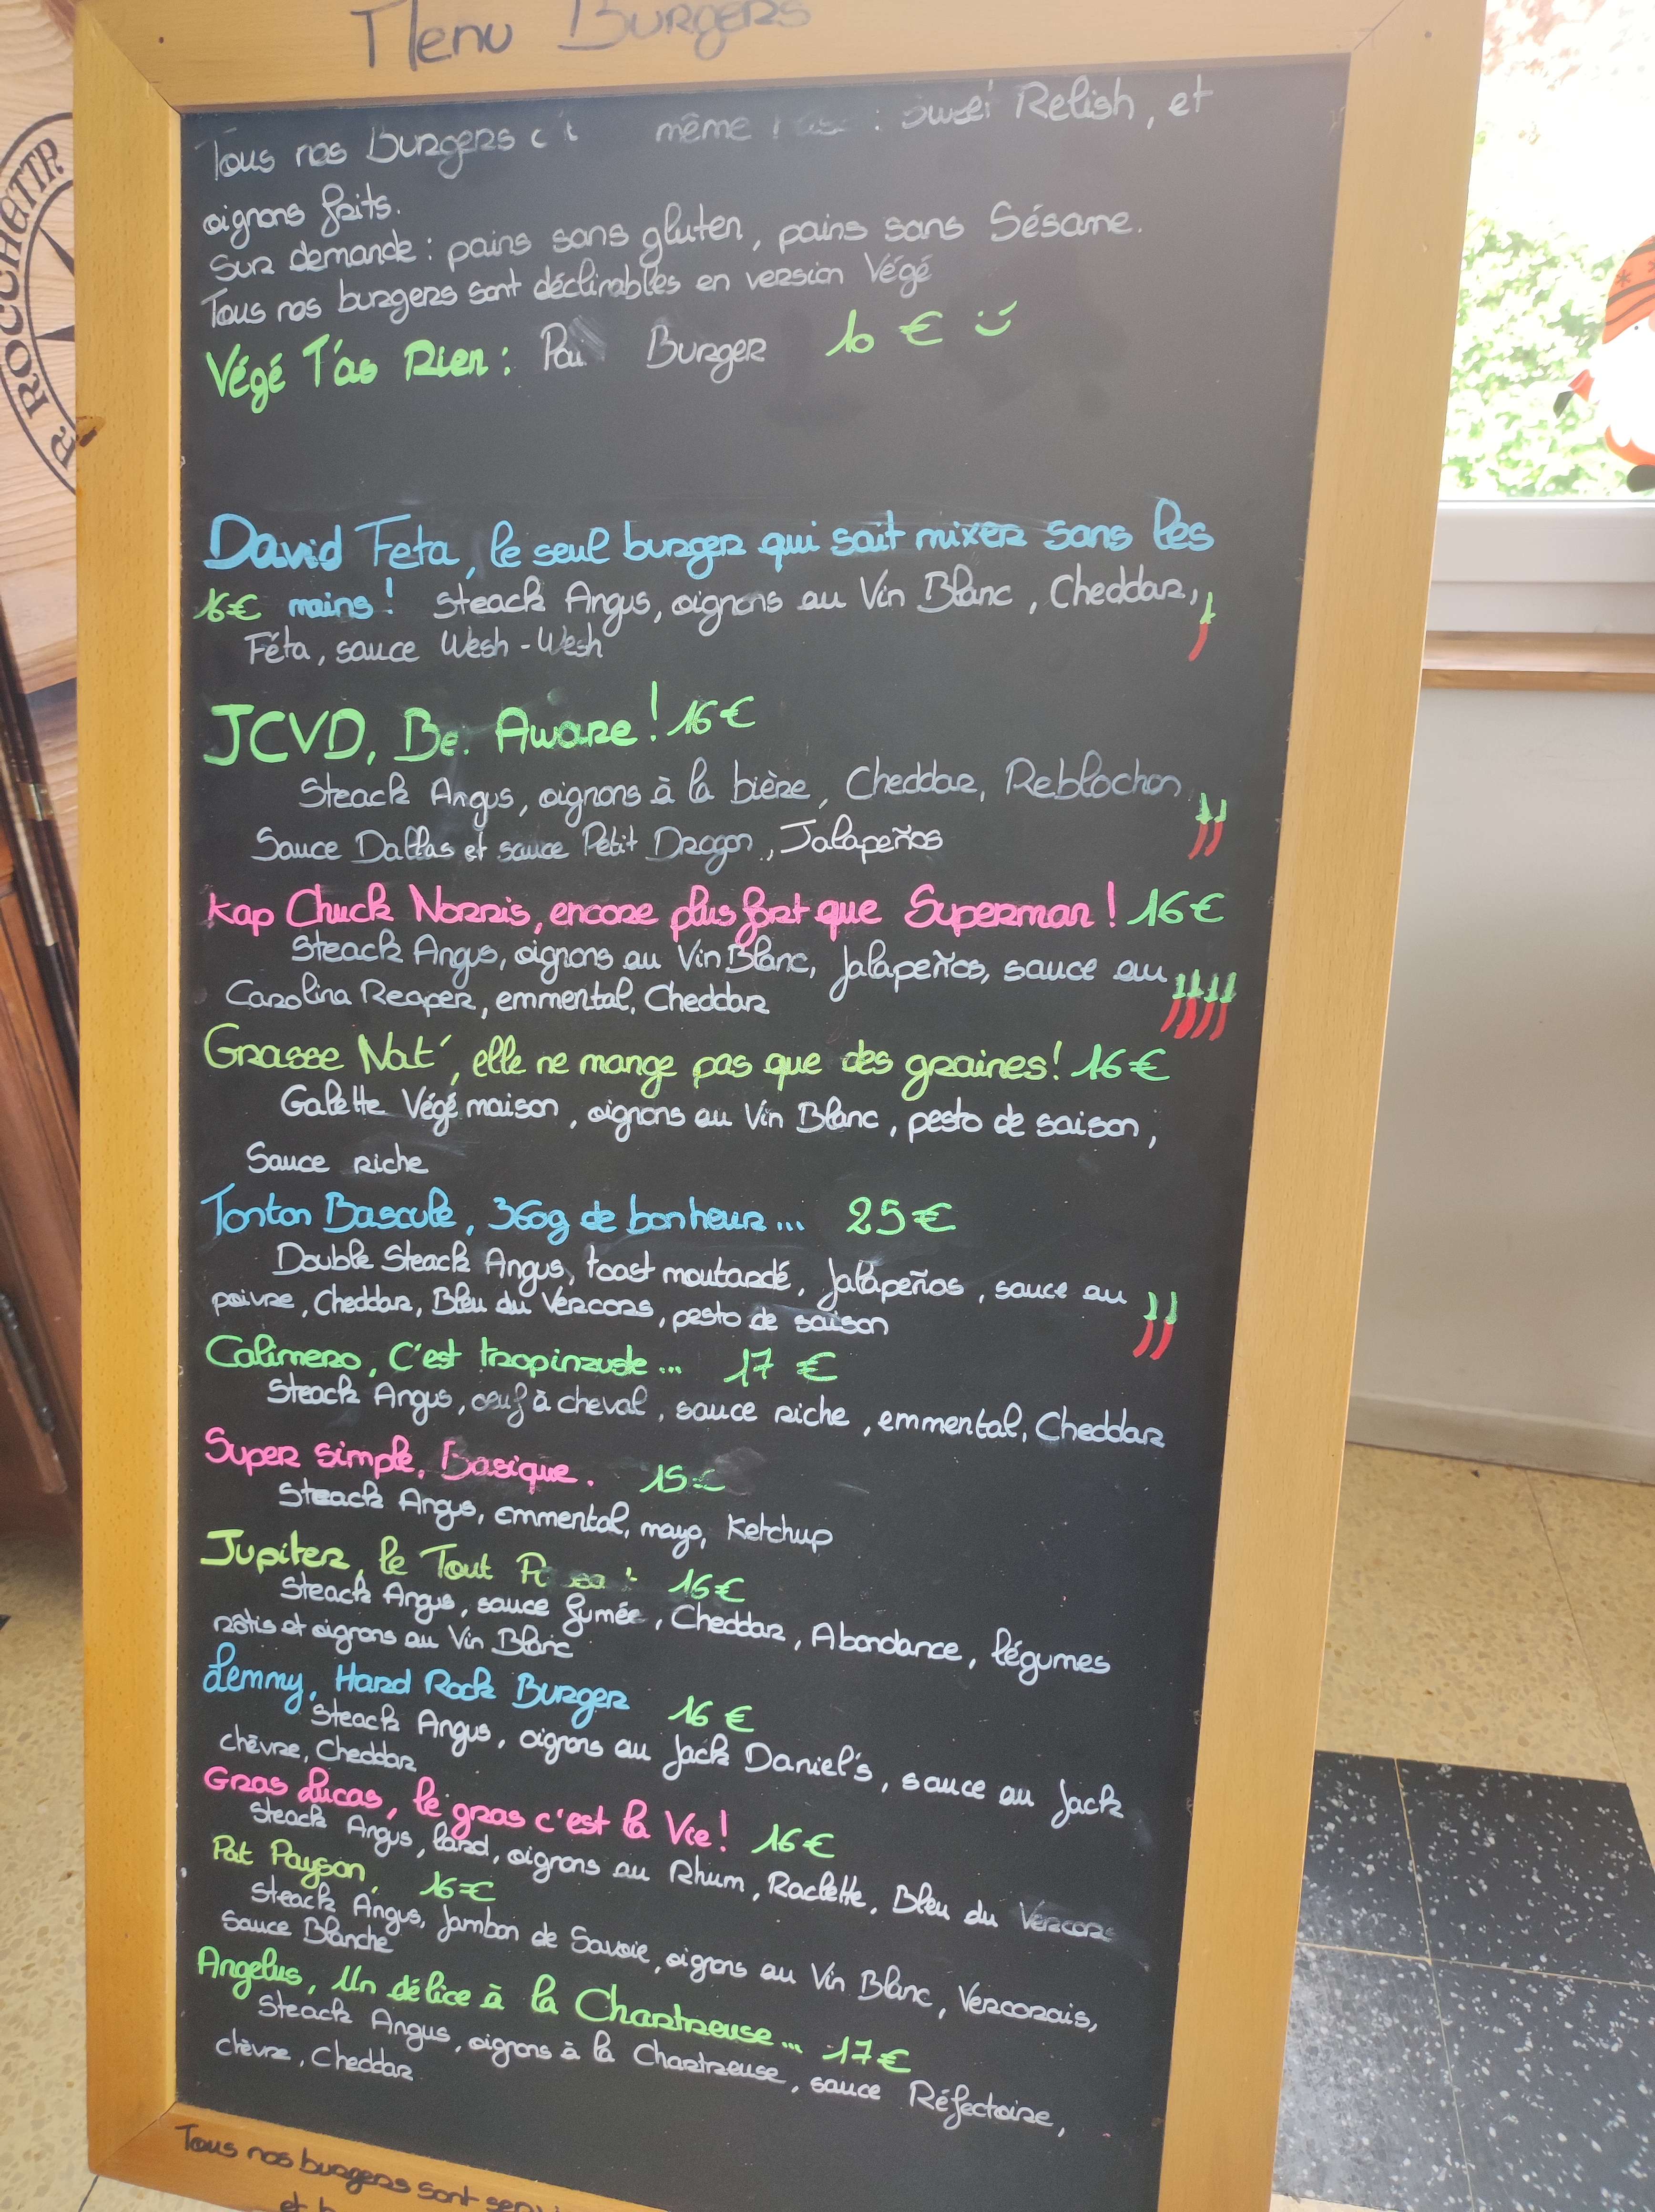 Menu Burgers
Tous nos Burgers même : Sweet Relish, et
oignons frits.
Sur demande : pains sans gluten, pains sans Sésame.
Tous nos burgers sont déclinables en version Végé
Végé T'as Rien : Burger 10 €
David Feta, le seul burger qui sait mixer sans les
16€ mains ! Steack Angus, oignons au Vin Blanc, Cheddar,
Féta, sauce Wesh-Wesh
JCVD, Be. Aware ! 16€
Steack Angus, oignons à la bière, Cheddar, Reblochon,
Sauce Dallas et sauce Petit Dragon, Jalapeños
Kap Chuck Norris, encore plus fort que Superman ! 16€
Steack Angus, oignons au Vin Blanc, Jalapeños, sauce au
Carolina Reaper, emmental, Cheddar
Grasse Nat', elle ne mange pas que des graines ! 16€
Galette Végé maison, oignons au Vin Blanc, pesto de saison,
Sauce riche
Tonton Bascule, 360g de bonheur... 25€
Double Steack Angus, toast moutardé, Jalapeños, sauce au
poivre, Cheddar, Bleu du Vercors, pesto de saison
Calimero, C'est tropinzuste... 17 €
Steack Angus, oeuf à cheval, sauce riche, emmental, Cheddar
Super simple, Basique. 15€
Steack Angus, emmental, mayo, Ketchup
Jupiter, le Tout 16€
Steack Angus, sauce fumée, Cheddar, Abondance, légumes
rôtis et oignons au Vin Blanc
Lemmy, Hard Rock Burger 16 €
Steack Angus, oignons au Jack Daniel's, sauce au Jack
chèvre, Cheddar
Gras Lucas, le gras c'est la Vie ! 16€
Steack Angus, lard, oignons au Rhum, Raclette, Bleu du Vercors
Pat Payson, 16€
Steack Angus, Jambon de Savoie, oignons au Vin Blanc, Vercorais,
Sauce Blanche
Angelus, Un délice à la Chartreuse... 17€
Steack Angus, oignons à la Chartreuse, sauce Réfectoire,
chèvre, Cheddar
Tous nos burgers sont
et